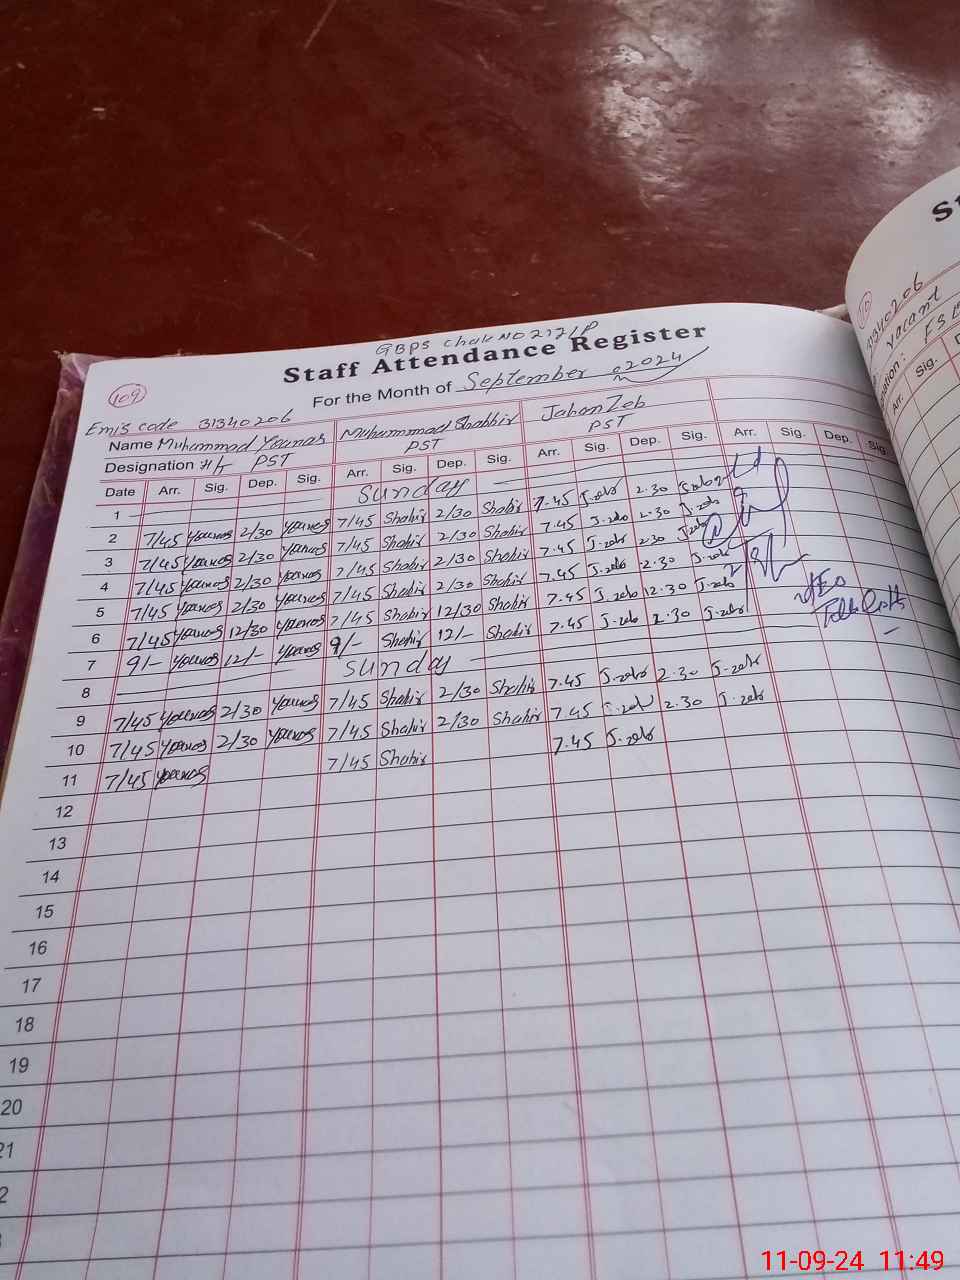 GBPS Chak NO 217/P
Staff Attendance Register
109
For the Month of September 2024
Emis code 31340206
Name Muhammad Younas Muhammad Shabbir JahanZeb
Designation H/T PST PST PST
Date Arr. Sig. Dep. Sig. Arr. Sig. Dep. Sig. Arr. Sig. Dep. Sig. Arr. Sig. Dep. Sig.
1 Sunday
2 7/45 Younas 2/30 Younas 7/45 Shabir 2/30 Shabir 7.45 J.zeb 2.30 J.zeb
3 7/45 Younas 2/30 Younas 7/45 Shabir 2/30 Shabir 7.45 J.zeb 2.30 J.zeb
4 7/45 Younas 2/30 Younas 7/45 Shabir 2/30 Shabir 7.45 J.zeb 2.30 J.zeb
5 7/45 Younas 2/30 Younas 7/45 Shabir 2/30 Shabir 7.45 J.zeb 2.30 J.zeb
6 7/45 Younas 12/30 Younas 7/45 Shabir 12/30 Shabir 7.45 J.zeb 12.30 J.zeb
7 9/- Younas 12/- Younas 9/- Shabir 12/- Shabir 7.45 J.zeb 2.30 J.zeb
8 Sunday
9 7/45 Younas 2/30 Younas 7/45 Shabir 2/30 Shabir 7.45 J.zeb 2.30 J.zeb
10 7/45 Younas 2/30 Younas 7/45 Shabir 2/30 Shabir 7.45 J.zeb 2.30 J.zeb
11 7/45 Younas 7/45 Shabir 7.45 J.zeb
12
13
14
15
16
17
18
19
20
21
2
St
31340206
Vacant
ation: ESE
Arr. Sig. D
11-09-24 11:49